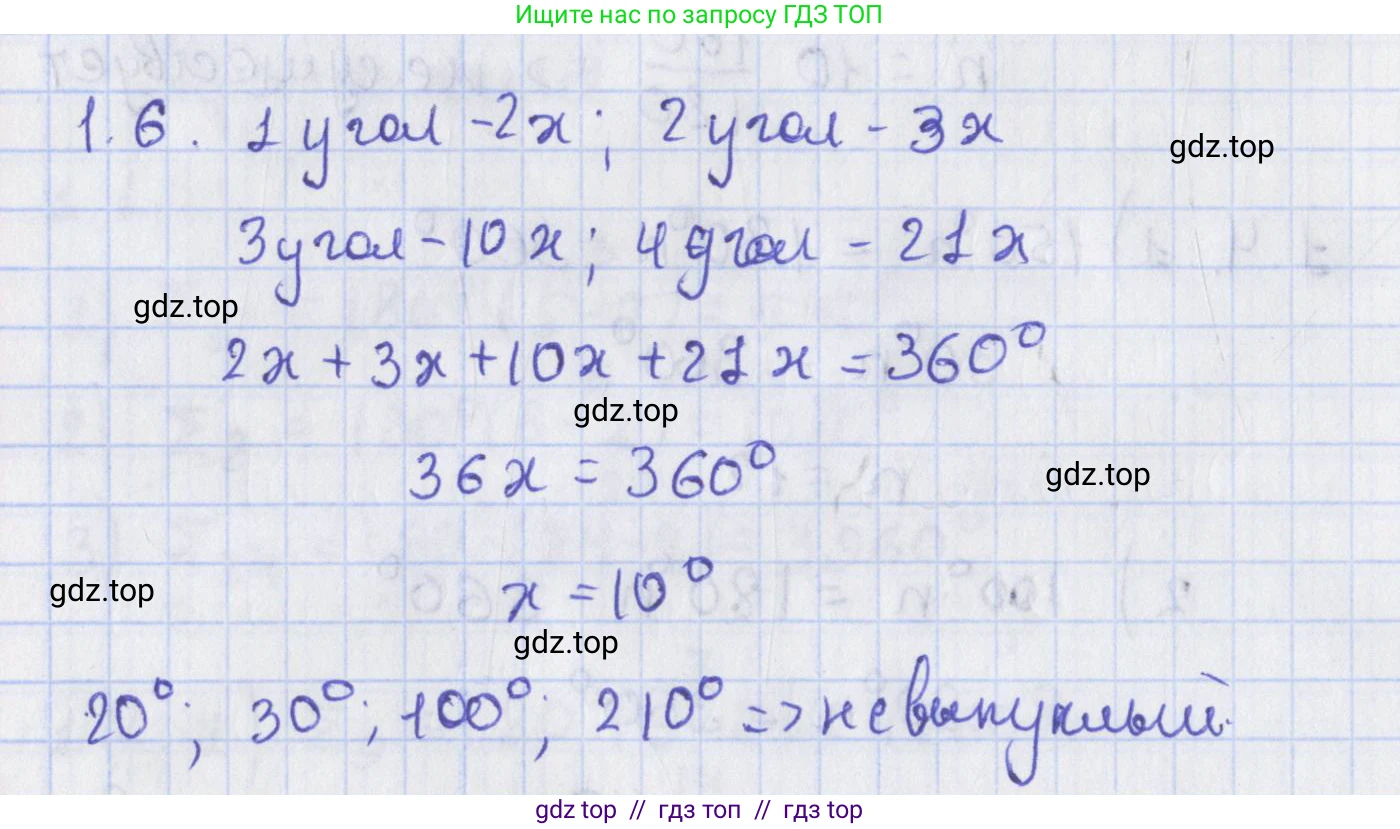 Ищите нас по запросу ГДЗ ТОП
1.6. 1 угол - 2x; 2 угол - 3x
gdz.top
3 угол - 10x; 4 угол - 21x
gdz.top
2x + 3x + 10x + 21x = 360°
gdz.top
36x = 360°
gdz.top
x = 10°
gdz.top
gdz.top
20°; 30°; 100°; 210° => невыпуклый.
gdz top // гдз топ // гдз top